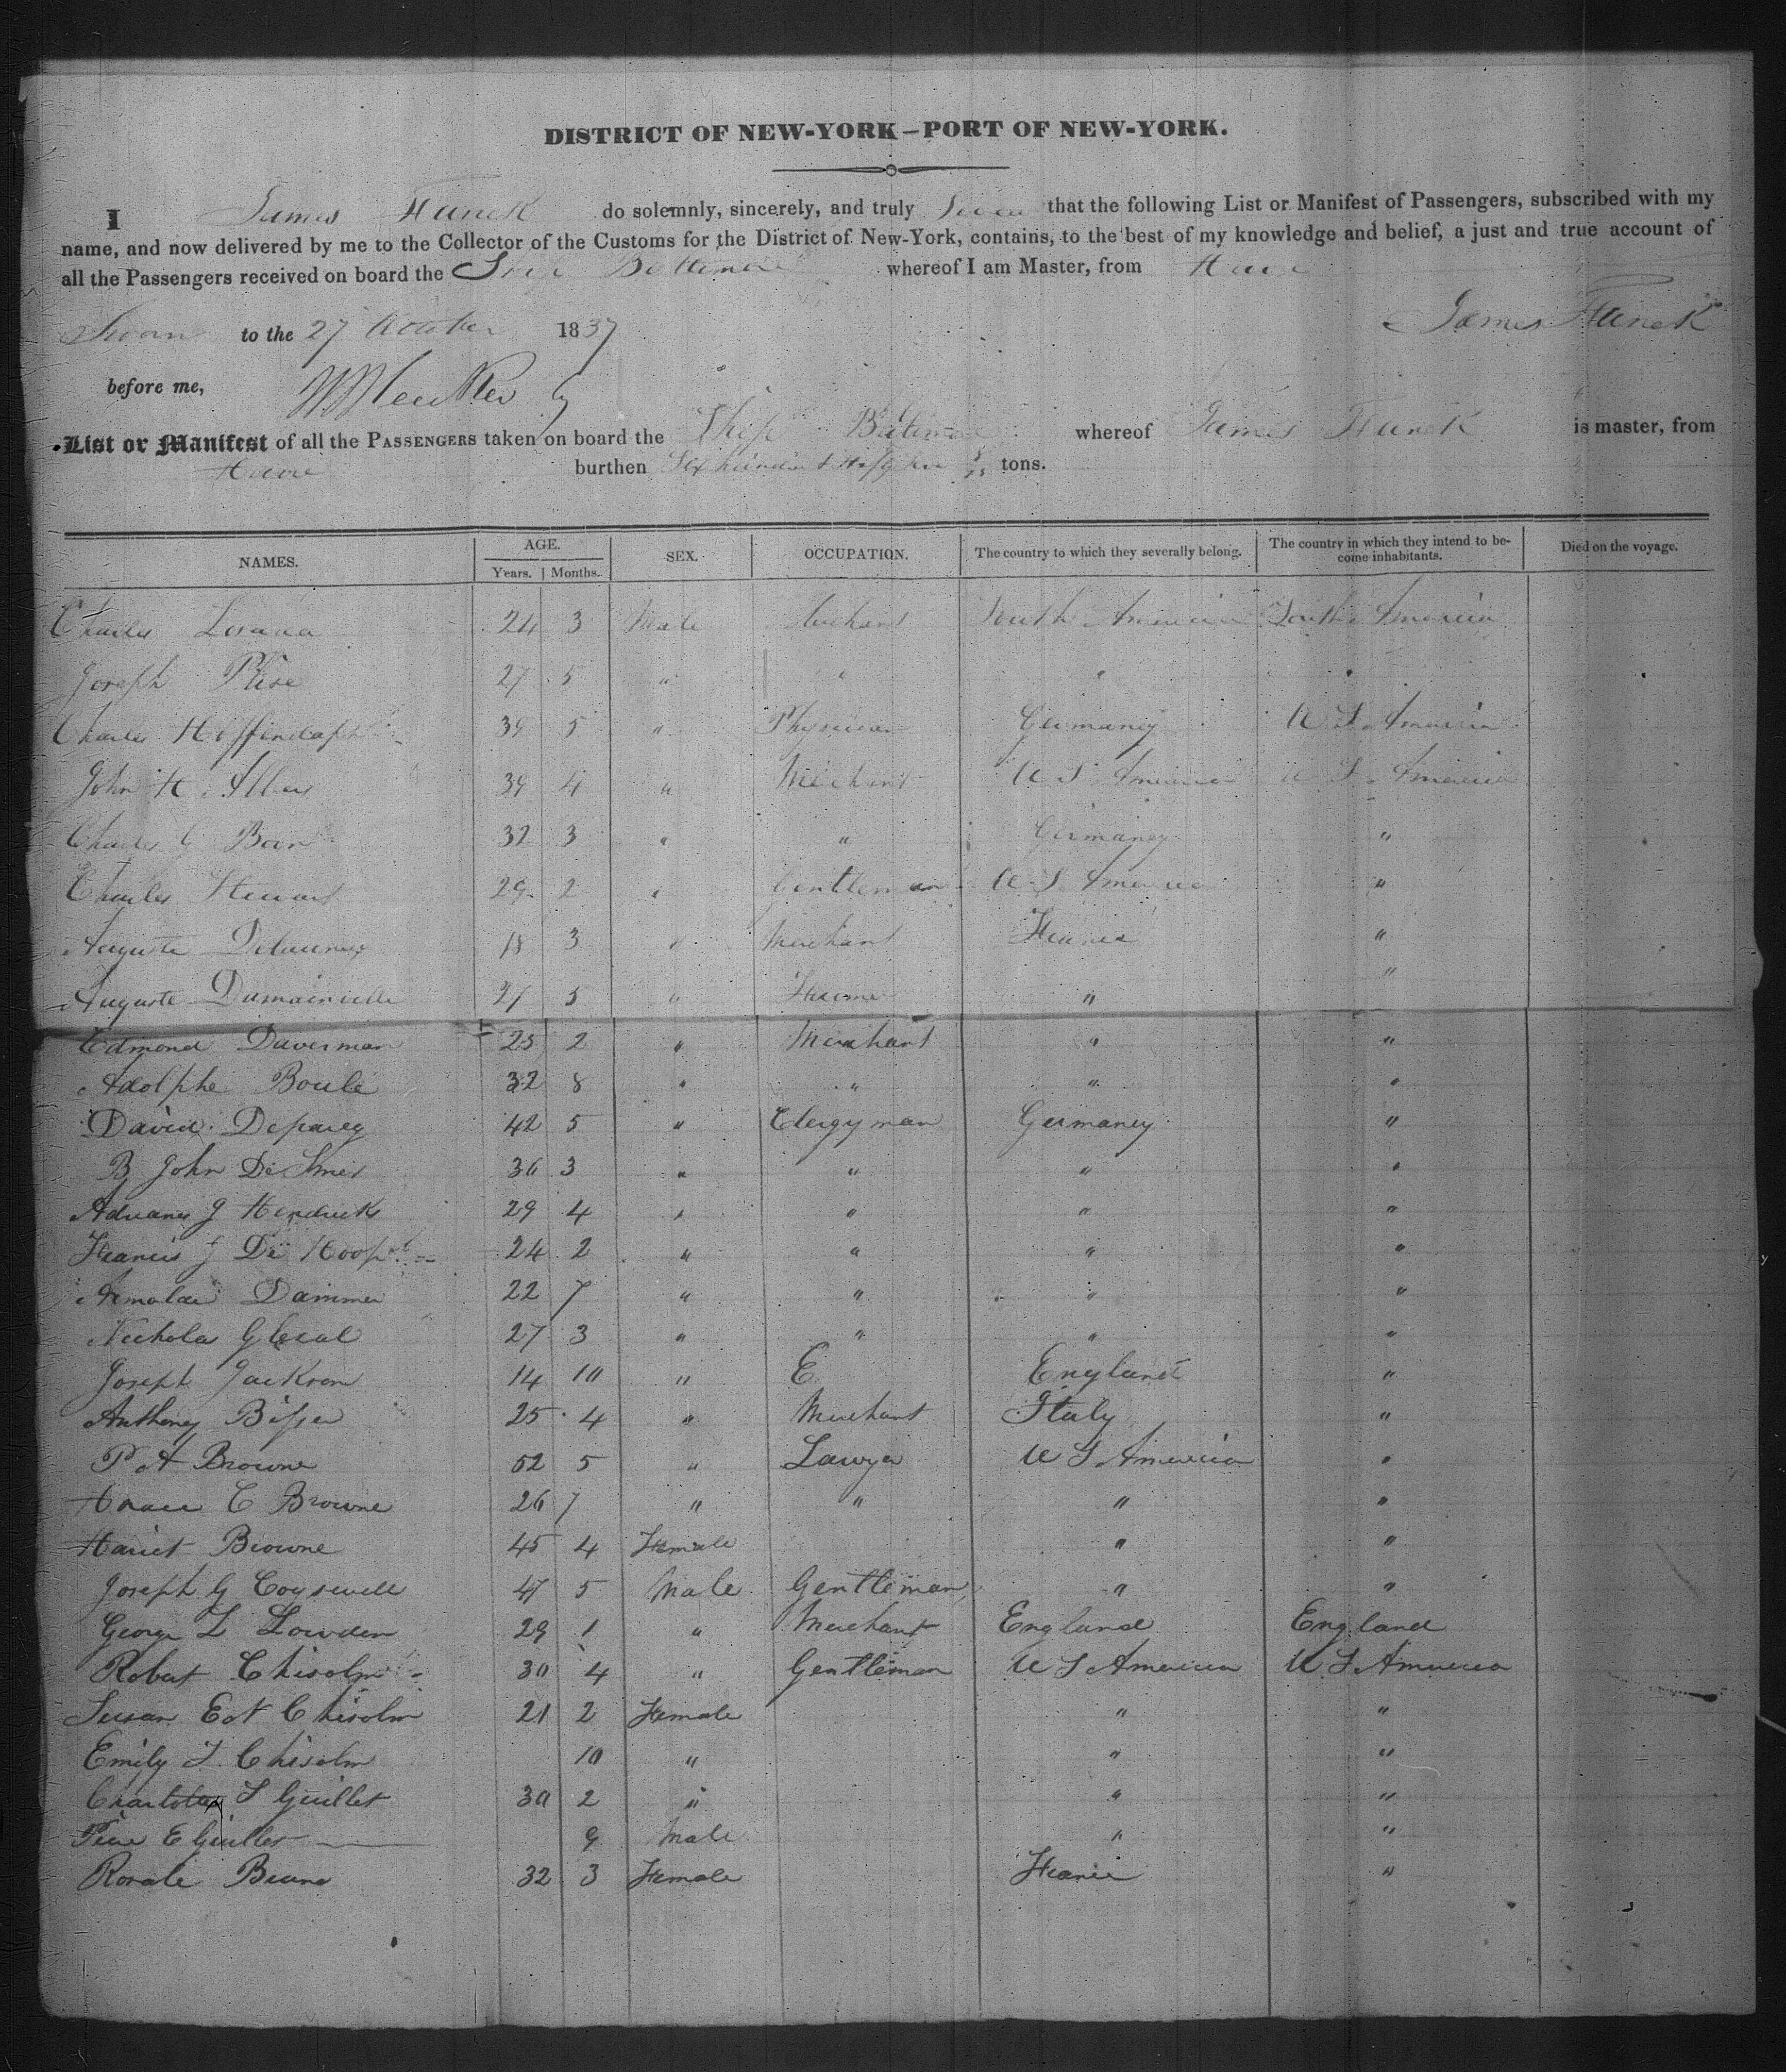 DISTRICT OF NEW-YORK—PORT OF NEW-YORK.
I James Funck do solemnly, sincerely, and truly Swear that the following List or Manifest of Passengers, subscribed with my
name, and now delivered by me to the Collector of the Customs for the District of New-York, contains, to the best of my knowledge and belief, a just and true account of
all the Passengers received on board the Ship Baltimore whereof I am Master, from Havre
James Funck
Sworn to the 27 October 1837
before me,
List or Manifest of all the PASSENGERS taken on board the Ship Baltimore whereof James Funck is master, from
Havre burthen Six hundred & fifty tons.
NAMES. AGE. SEX. OCCUPATION. The country to which they severally belong. The country in which they intend to be- Died on the voyage.
Years. Months. come inhabitants.
Charles 24 3 Male Merchant South America South America
Joseph 27 5 " " " "
Charles 39 5 " Physician Germany U S America
John H Albers 39 4 " Merchant U S America U S America
Charles G 32 3 " " Germany "
Charles Stewart 29 2 " Gentleman U S America "
Auguste Delauney 18 3 " Merchant France "
Auguste Dumainville 27 5 " "  "
Edmond Daverman 25 2 " Merchant " "
Adolphe Boulé 32 8 " " " "
David Deparcq 42 5 " Clergyman Germaney "
B John De Smet 36 3 " " " "
Adrianes J Hendricks 29 4 " " " "
Francis J De Hoop 24 2 " " " "
Dammen 22 7 " " " "
Nicholas 27 3 " " " "
Joseph Jackson 14 10 " E England "
Anthony 25 4 " Merchant Italy "
P A Browne 52 5 " Lawyer U S America "
Horace C Browne 26 7 " " " "
Hariet Browne 45 4 Female " "
Joseph G Cogswell 47 5 Male Gentleman " "
George L Lowden 29 1 " Merchant England England
Robert Chisolm 30 4 " Gentleman U S America U S America
Susan E N Chisolm 21 2 Female " "
Emily I Chisolm 10 " " "
Charlotte S Guillet 30 2 " " "
E Guillet 9 Male " "
Rosale 32 3 Female France "